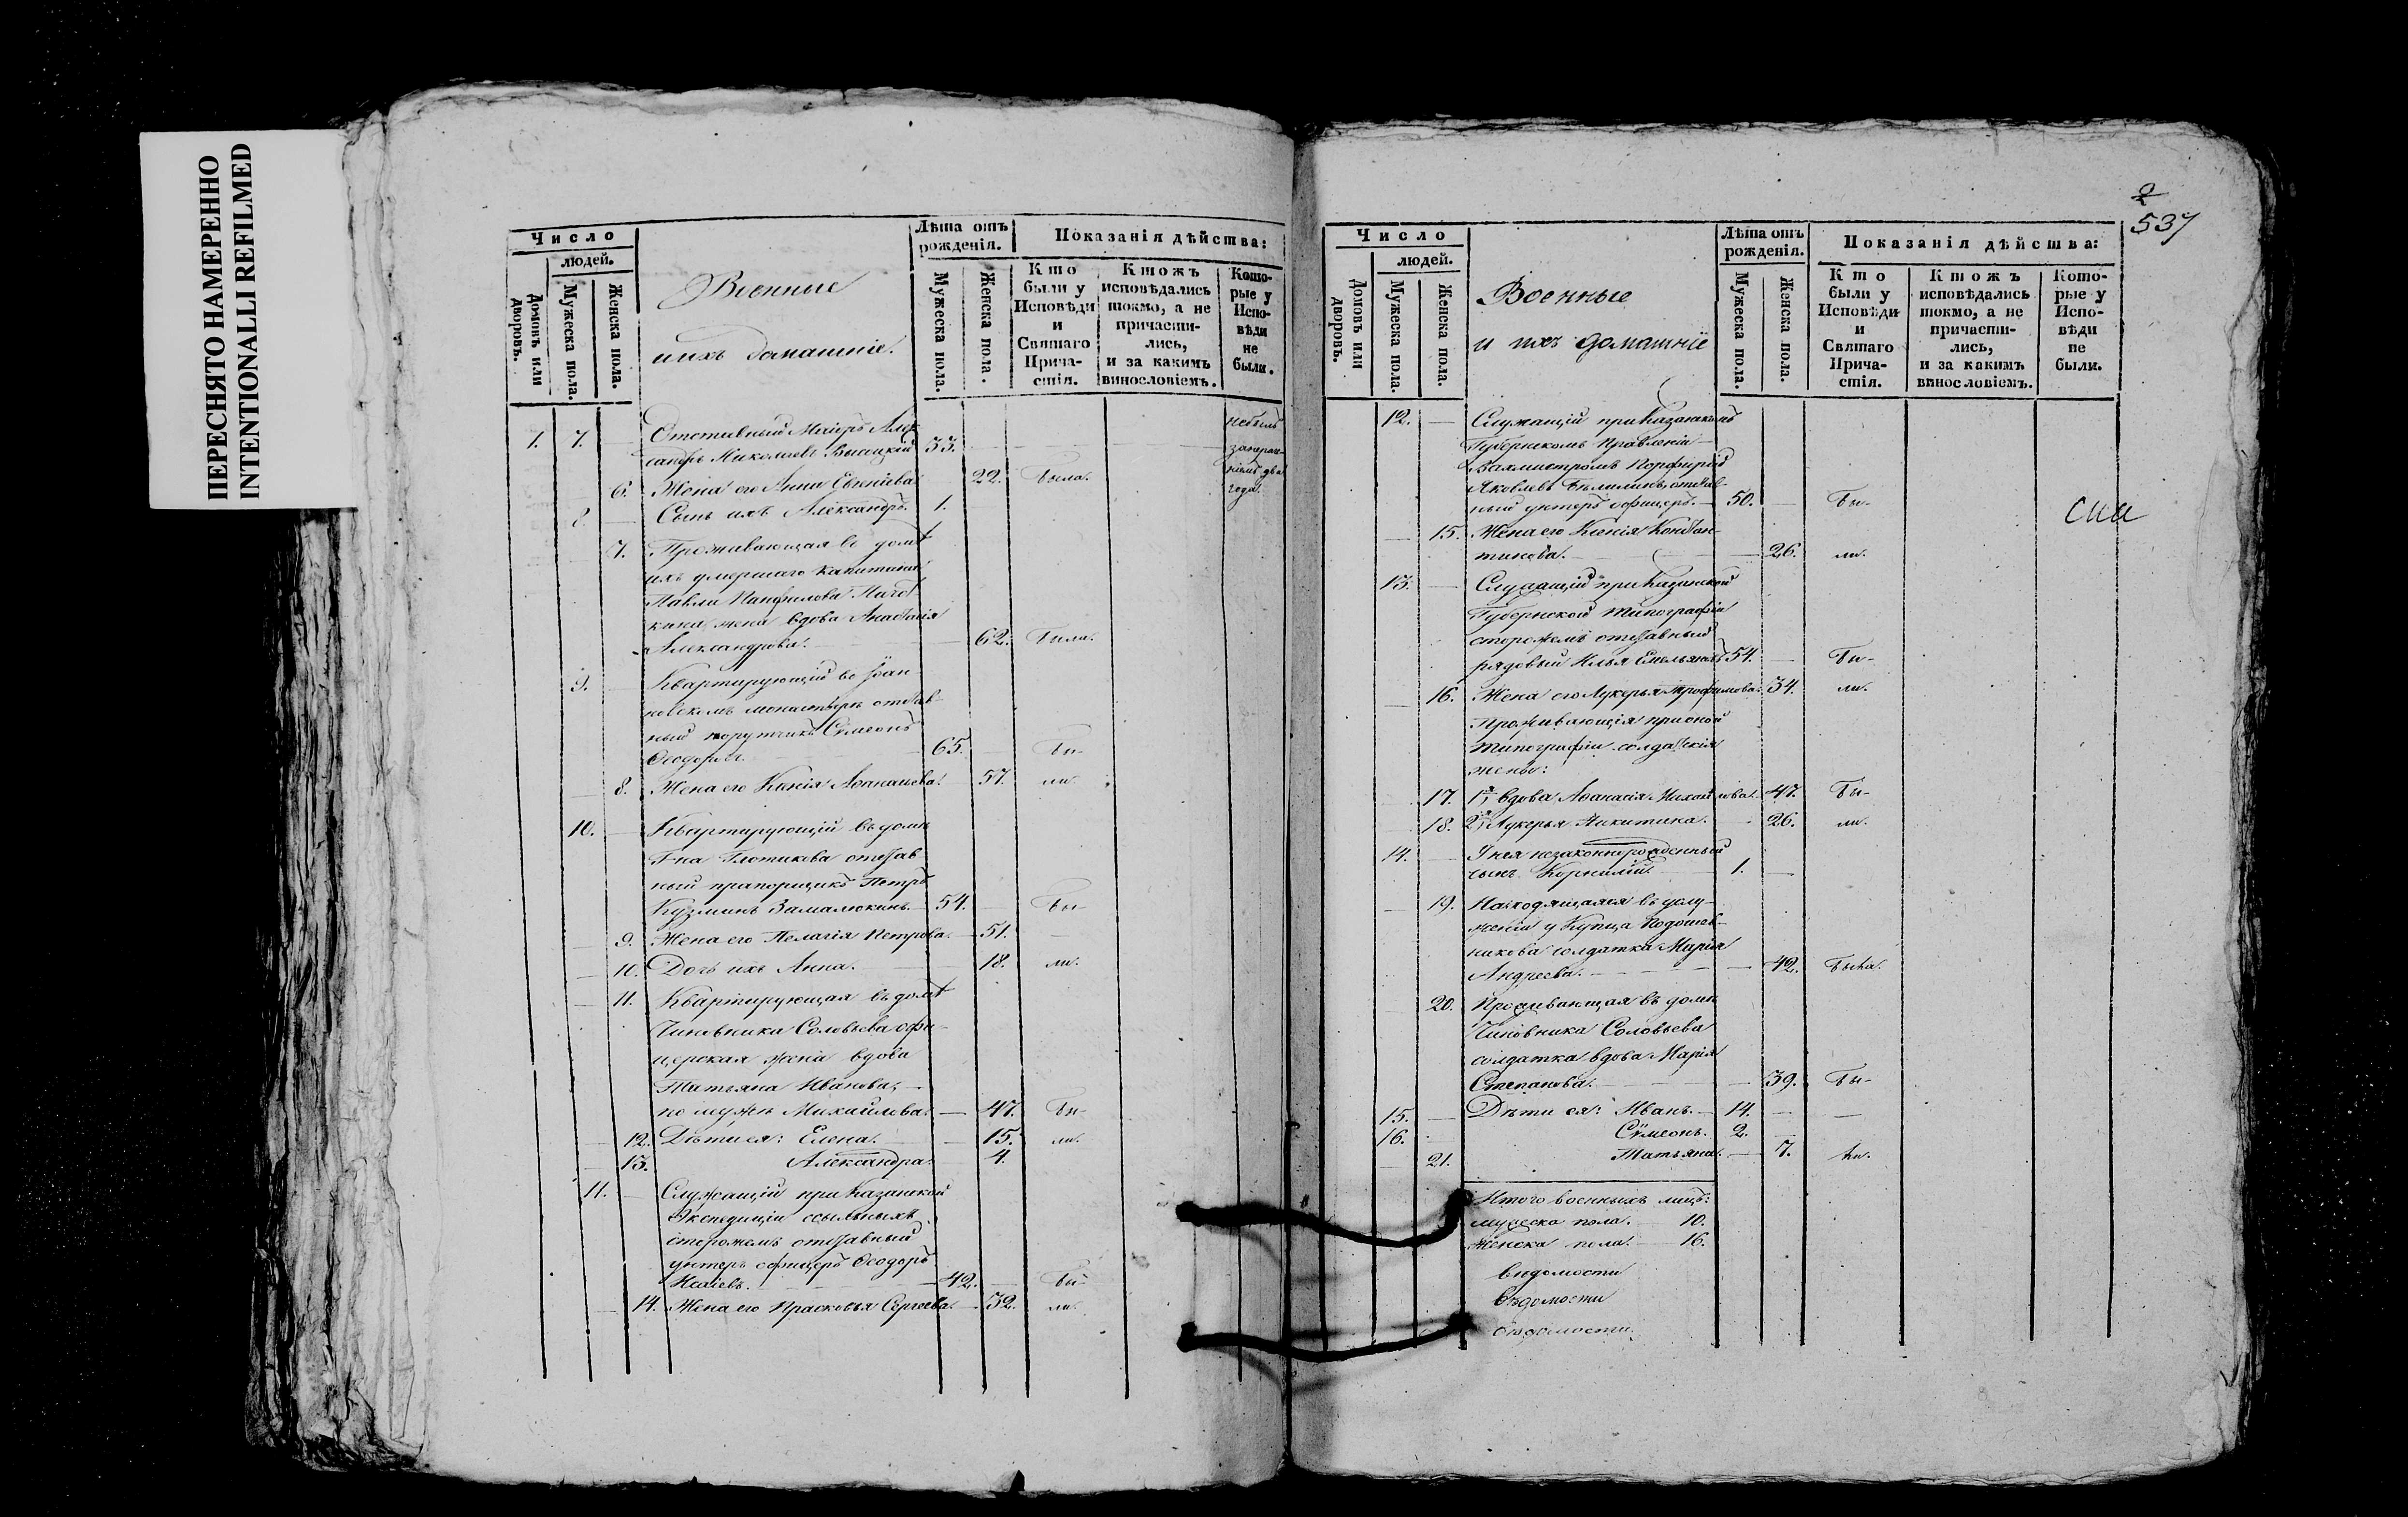 ПЕРЕСНЯТО НАМЕРЕННО
INTENTIONALLI REFILMED
Число
людей.
Домовъ или дворовъ.
Мужеска пола.
Женска пола.
Военные
и ихъ домашніе.
Лѣта отъ рожденія.
Мужеска пола.
Женска пола.
Показанія дѣйства:
Кто были у Исповѣди и Святаго Прича-стія.
Ктожъ исповѣдались токмо, а не причасти-лись, и за какимъ винословіемъ.
Кото-рые у Испо-вѣди не были.
1. 7. — Отставный Маіоръ Алек
сандръ Николаевъ Высоцкій 33.
небылъ
6. Жена его Анна Евгеніева 22. была.
два года.
8. — Сынъ ихъ Александръ. 1.
7. Проживающая въ домѣ
ихъ умершаго Капитана
Павла Панфилова
жена вдова Анастасія
Александрова. 62. была.
9. — Квартирующій въ Іоан
новскомъ монастырѣ отстав-
ный порутчикъ Сѵмеонъ
Ѳеодоровъ. 65. — Бы-
8. Жена его Ксенія Аѳанасьева. 57. ли.
10. — Квартирующій въ домѣ
Г-на Плотникова отстав
ный прапорщикъ Петръ
Кузминъ Замалюкинъ. 54. — Бы-
9. Жена его Пелагія Петрова. — 51. —
10. Дочь ихъ Анна. — 18. ли.
11. Квартирующая въ домѣ
Чиновника Соловьева офи-
церская жена вдова
Татьяна Иванова,
по мужѣ Михайлова. — 47. Бы-
12. Дѣти ея: Елена. — 15. ли.
13. Александра. 4.
11. — Служащій при Казанской
Экспедиціи ссыльныхъ
сторожемъ отставный
унтеръ офицеръ Ѳеодоръ
Исаевъ. 42. — Бы-
14. Жена его Прасковья Сергеева. — 32. ли.
537
Число
людей.
Домовъ или дворовъ.
Мужеска пола.
Женска пола.
Военные
и ихъ домашніе
Лѣта отъ рожденія.
Мужеска пола.
Женска пола.
Показанія дѣйства:
Кто были у Исповѣди и Святаго Прича-стія.
Ктожъ исповѣдались токмо, а не причасти-лись, и за какимъ винословіемъ.
Кото-рые у Испо-вѣди не были.
12. — Служащій при Казанскомъ
Губернскомъ Правленіи
Вахмистромъ Порфирій
Яковлевъ отстав-
ный унтеръ офицеръ. — 50. — Бы-
15. Жена его Ксенія Констан-
тинова. — 26. ли.
13. — Служащій при Казанской
Губернской типографіи
сторожемъ отставный
рядовый Илья Емельяновъ 54. — Бы-
16. Жена его Лукерья Трофимова. 34. ли.
Проживающія при оной
типографіи солдатскія
жены:
17. 1я вдова Аѳанасія Михайлова. 47. Бы-
18. 2я Лукерья Никитина. 26. ли.
14. — У нея незаконнорожденный
сынъ Корнилій. 1. —
19. Находящаяся въ услу-
женіи у Купца Подошев-
никова солдатка Марія
Андреева. — 42. Была.
20. Проживающая въ домѣ
Чиновника Соловьева
солдатка вдова Марія
Степанова. — 39. Бы-
15. — Дѣти ея: Иванъ. — 14. — —
16. — Сѵмеонъ. 2. —
21. Татьяна. — 7. ли.
Итого военныхъ лицъ:
мужеска пола. 10.
женска пола. 16.
вѣдомости
вѣдомости
вѣдомости